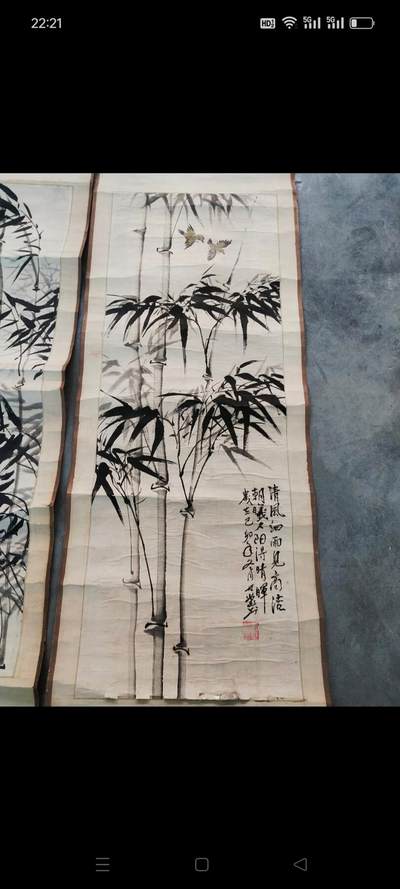 22:21
HD
5G
5G
清風細雨見高潔
朝曦夕阳得晴暉
歲在己卯年